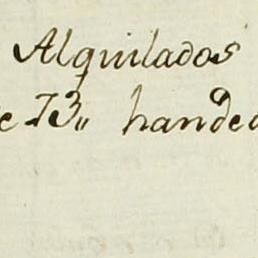 Alquilados
e 73,, handed